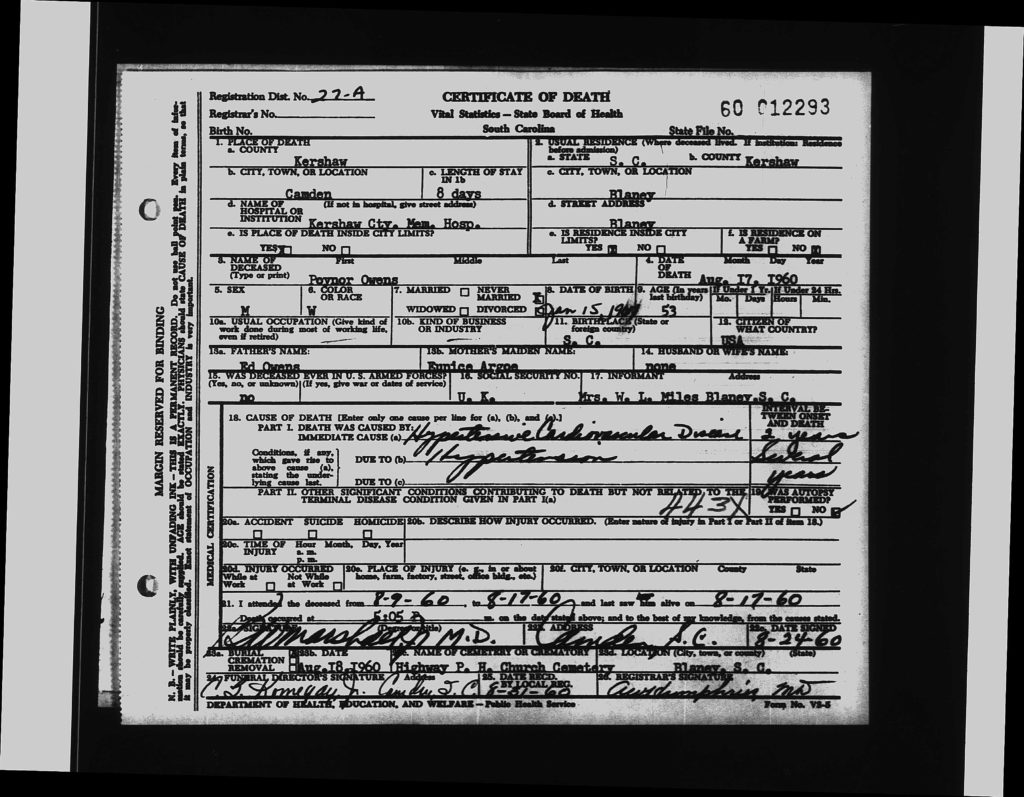 Registration Dist. No. 22-A
CERTIFICATE OF DEATH
60 012293
Registrar's No.
Vital Statistics — State Board of Health
Birth No.
South Carolina
State File No.
1. PLACE OF DEATH
a. COUNTY
Kershaw
2. USUAL RESIDENCE (Where deceased lived. If institution: Residence before admission)
a. STATE S. C. b. COUNTY Kershaw
b. CITY, TOWN, OR LOCATION
Camden
c. LENGTH OF STAY IN 1b
8 days
c. CITY, TOWN, OR LOCATION
Blaney
d. NAME OF HOSPITAL OR INSTITUTION (If not in hospital, give street address)
Kershaw Cty. Mem. Hosp.
d. STREET ADDRESS
Blaney
e. IS PLACE OF DEATH INSIDE CITY LIMITS?
YES NO
e. IS RESIDENCE INSIDE CITY LIMITS?
YES NO
f. IS RESIDENCE ON A FARM?
YES NO
3. NAME OF DECEASED (Type or print)
First Middle Last
Poynor Owens
4. DATE OF DEATH
Month Day Year
Aug. 17, 1960
5. SEX
M
6. COLOR OR RACE
W
7. MARRIED NEVER MARRIED
WIDOWED DIVORCED
8. DATE OF BIRTH
Jan 15,
9. AGE (In years last birthday)
53
If Under 1 Yr. If Under 24 Hrs.
Mo. Days Hours Min.
10a. USUAL OCCUPATION (Give kind of work done during most of working life, even if retired)
10b. KIND OF BUSINESS OR INDUSTRY
11. BIRTHPLACE (State or foreign country)
S. C.
12. CITIZEN OF WHAT COUNTRY?
USA
13a. FATHER'S NAME:
Ed Owens
13b. MOTHER'S MAIDEN NAME:
Eunice Argoe
14. HUSBAND OR WIFE'S NAME:
none
15. WAS DECEASED EVER IN U. S. ARMED FORCES?
(Yes, no, or unknown) (If yes, give war or dates of service)
no
16. SOCIAL SECURITY NO.
U. K.
17. INFORMANT Address
Mrs. W. L. Miles Blaney, S. C.
18. CAUSE OF DEATH [Enter only one cause per line for (a), (b), and (c).]
INTERVAL BETWEEN ONSET AND DEATH
PART I. DEATH WAS CAUSED BY:
IMMEDIATE CAUSE (a) Hypertensive Cardiovascular Disease 2 years
Conditions, if any, which gave rise to above cause (a), stating the underlying cause last.
DUE TO (b) Hypertension Several years
DUE TO (c)
PART II. OTHER SIGNIFICANT CONDITIONS CONTRIBUTING TO DEATH BUT NOT RELATED TO THE TERMINAL DISEASE CONDITION GIVEN IN PART I(a)
443X
19. WAS AUTOPSY PERFORMED?
YES NO
20a. ACCIDENT SUICIDE HOMICIDE
20b. DESCRIBE HOW INJURY OCCURRED. (Enter nature of injury in Part I or Part II of item 18.)
20c. TIME OF INJURY
Hour Month, Day, Year
a. m.
p. m.
20d. INJURY OCCURRED
While at Work Not While at Work
20e. PLACE OF INJURY (e. g., in or about home, farm, factory, street, office bldg., etc.)
20f. CITY, TOWN, OR LOCATION County State
21. I attended the deceased from 8-9-60, to 8-17-60 and last saw him alive on 8-17-60
Death occurred at 5:05 m. on the date stated above; and to the best of my knowledge, from the causes stated.
22a. SIGNATURE (Degree or title)
M.D.
22b. ADDRESS
Camden S.C.
22c. DATE SIGNED
8-24-60
23a. BURIAL CREMATION REMOVAL
23b. DATE
Aug. 18, 1960
23c. NAME OF CEMETERY OR CREMATORY
Highway P. H. Church Cemetary
23d. LOCATION (City, town, or county) (State)
Blaney, S. C.
24. FUNERAL DIRECTOR'S SIGNATURE Address
Jr. Camden S.C.
25. DATE RECD. BY LOCAL REG.
8-31-60
26. REGISTRAR'S SIGNATURE
AW Humphries MD
DEPARTMENT OF HEALTH, EDUCATION, AND WELFARE — Public Health Service
Form No. VS-5
MARGIN RESERVED FOR BINDING
N. B. — WRITE PLAINLY, WITH UNFADING INK — THIS IS A PERMANENT RECORD. Do not use ball point pen. Every item of information should be carefully supplied. AGE should be stated EXACTLY. PHYSICIANS should state CAUSE OF DEATH in plain terms, so that it may be properly classified. Exact statement of OCCUPATION and INDUSTRY is very important.
MEDICAL CERTIFICATION